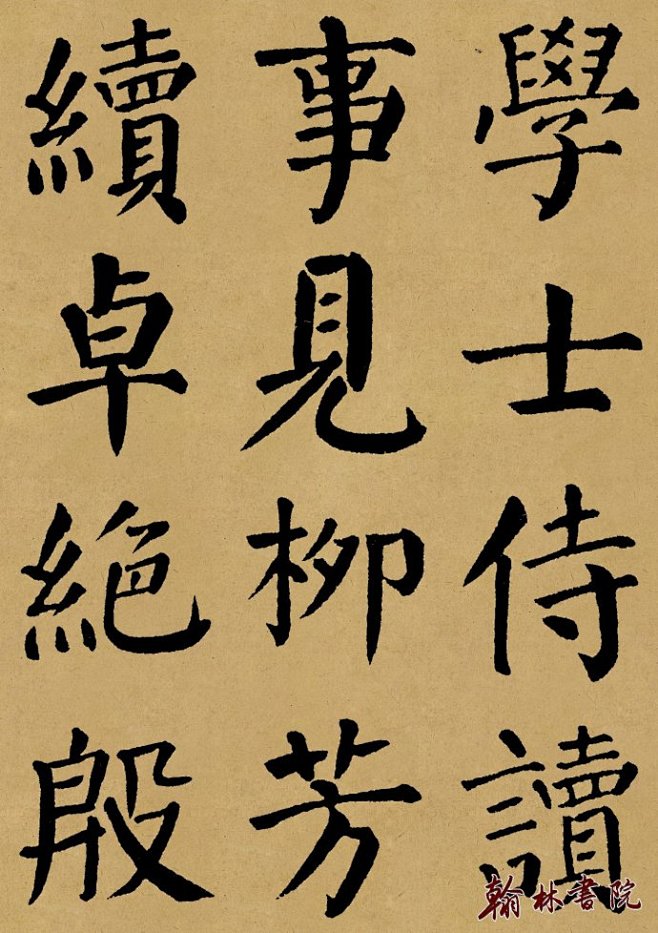 學士侍讀
事見柳芳
續卓絕殷
翰林書院